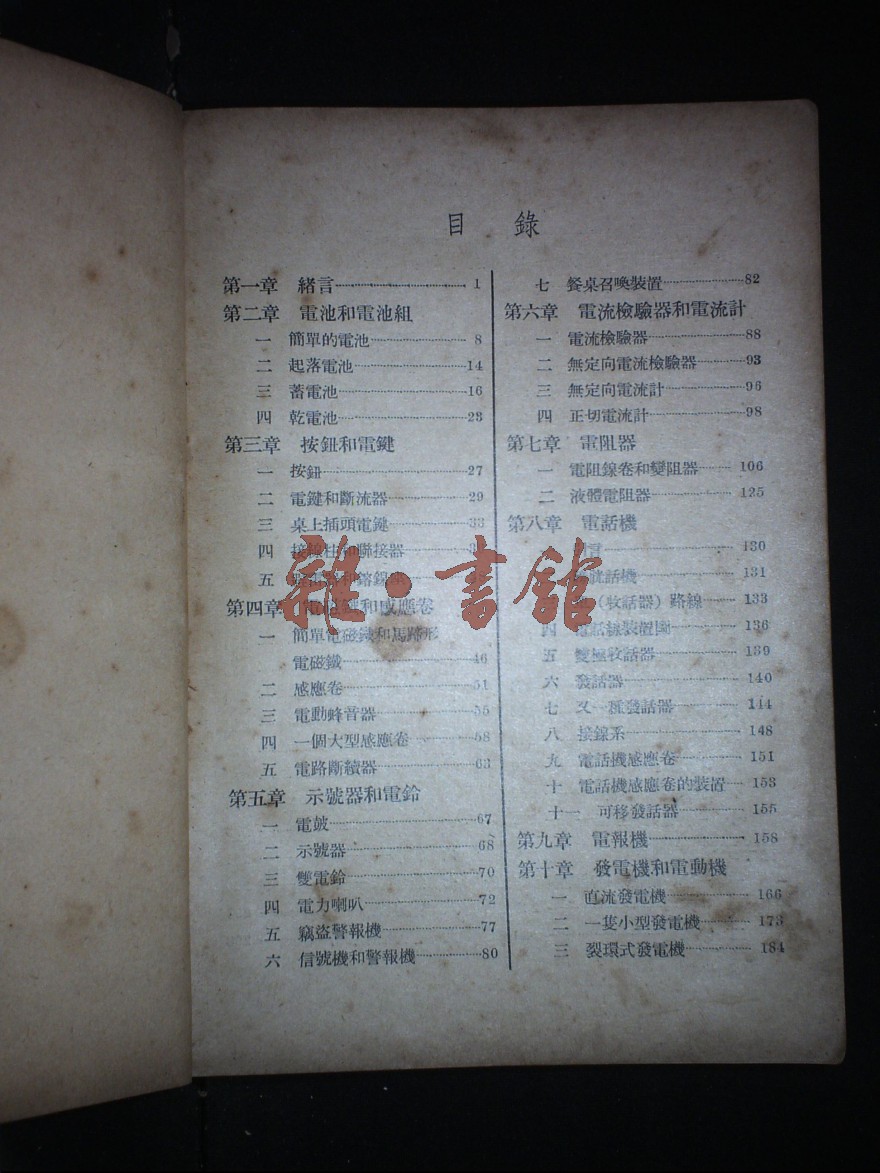 目錄
第一章 緒言 1
第二章 電池和電池組
一 簡單的電池 8
二 起落電池 14
三 蓄電池 16
四 乾電池 23
第三章 按鈕和電鍵
一 按鈕 27
二 電鍵和斷流器 29
三 桌上插頭電鍵 33
四 接線柱和聯接器
五
第四章 電磁鐵和感應卷
一 簡單電磁鐵和馬蹄形
電磁鐵 46
二 感應卷 51
三 電動蜂音器 55
四 一個大型感應卷 58
五 電路斷續器 63
第五章 示號器和電鈴
一 電鼓 67
二 示號器 68
三 雙電鈴 70
四 電力喇叭 72
五 竊盜警報機 77
六 信號機和警報機 80
七 餐桌召喚裝置 82
第六章 電流檢驗器和電流計
一 電流檢驗器 88
二 無定向電流檢驗器 93
三 無定向電流計 96
四 正切電流計 98
第七章 電阻器
一 電阻線卷和變阻器 106
二 液體電阻器 125
第八章 電話機
言 130
話機 131
(收話器)路線 133
四 電話線裝置圖 136
五 雙極收話器 139
六 發話器 140
七 又一種發話器 144
八 接線系 148
九 電話機感應卷 151
十 電話機感應卷的裝置 153
十一 可移發話器 155
第九章 電報機 158
第十章 發電機和電動機
一 直流發電機 166
二 一隻小型發電機 173
三 裂環式發電機 184
雜·書館